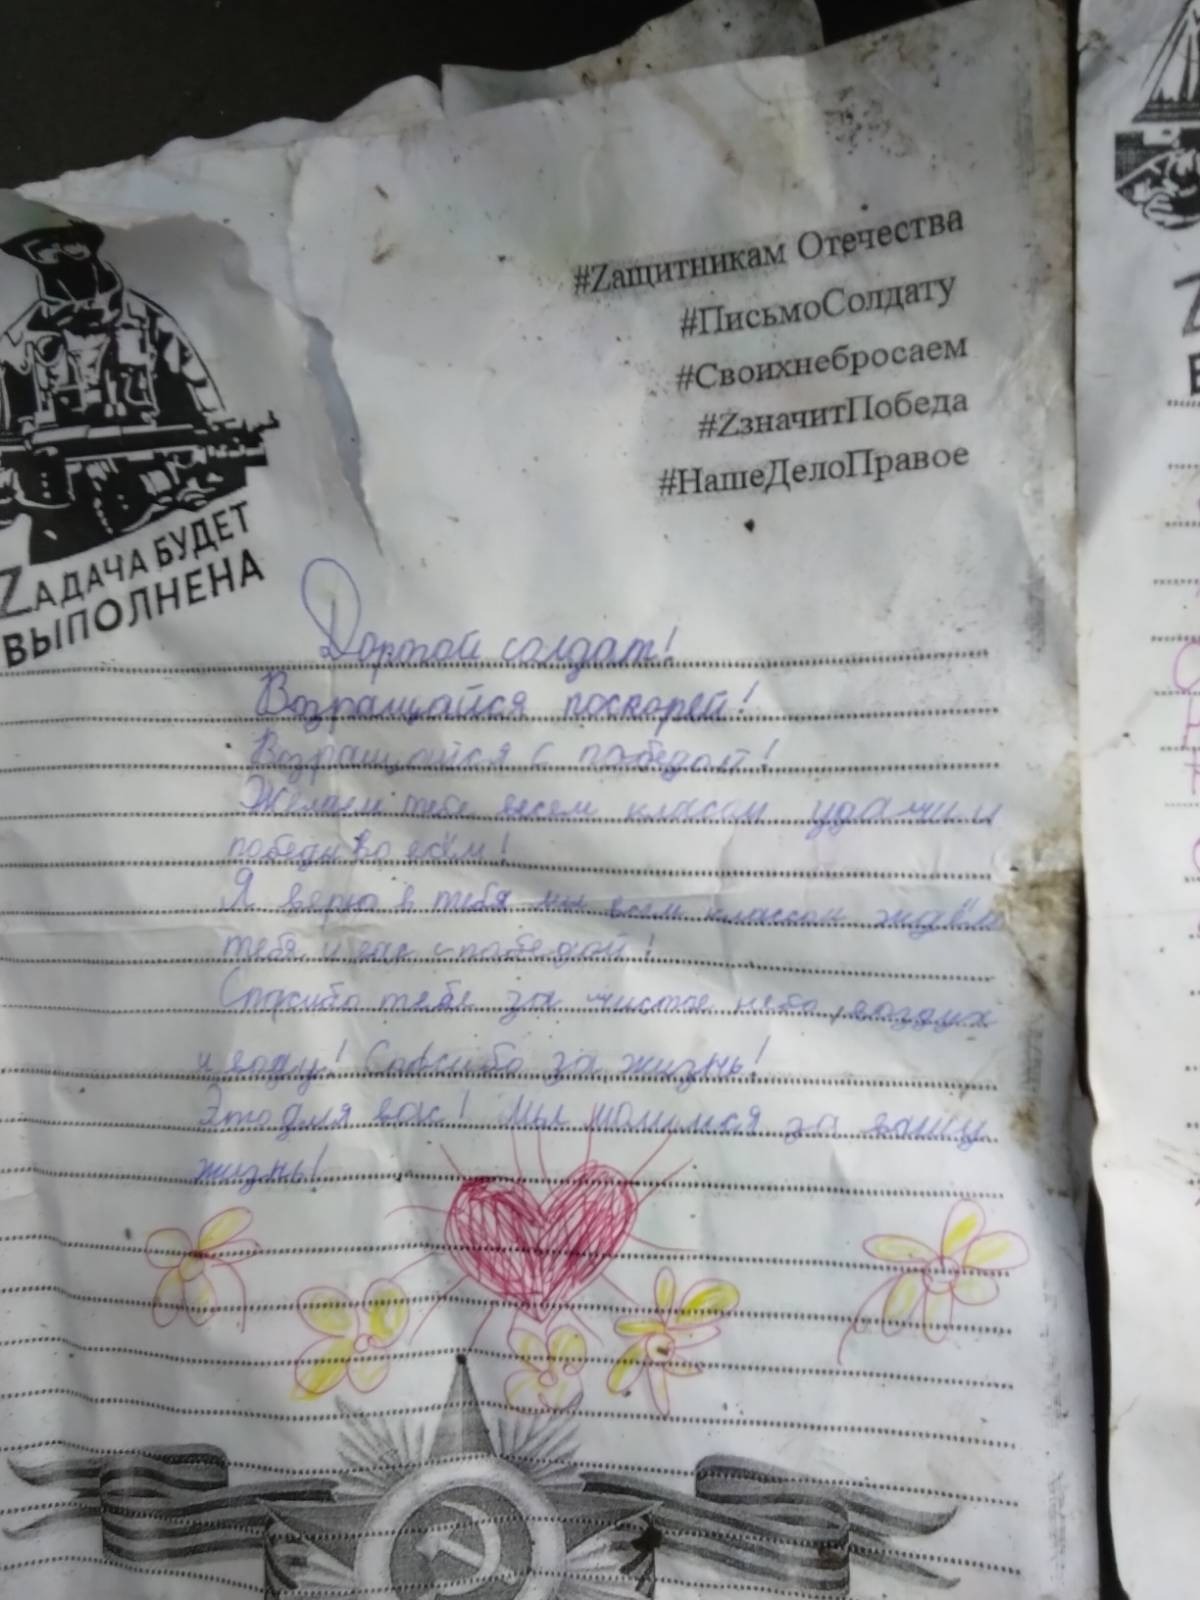 #Zащитникам Отечества
#ПисьмоСолдату
#Своихнебросаем
#ZзначитПобеда
#НашеДелоПравое
ZАДАЧА БУДЕТ
ВЫПОЛНЕНА
Дорогой солдат!
Возращайся поскорей!
Возращайся с победой!
Желаем тебе всем класом удачи и
победы во всём!
Я верю в тебя мы всем классом ждём
тебя и вас с победой!
Спасибо тебе за чистое небо, воздух
и воду! Спасибо за жизнь!
Это для вас! Мы молимся за вашу
жизнь!